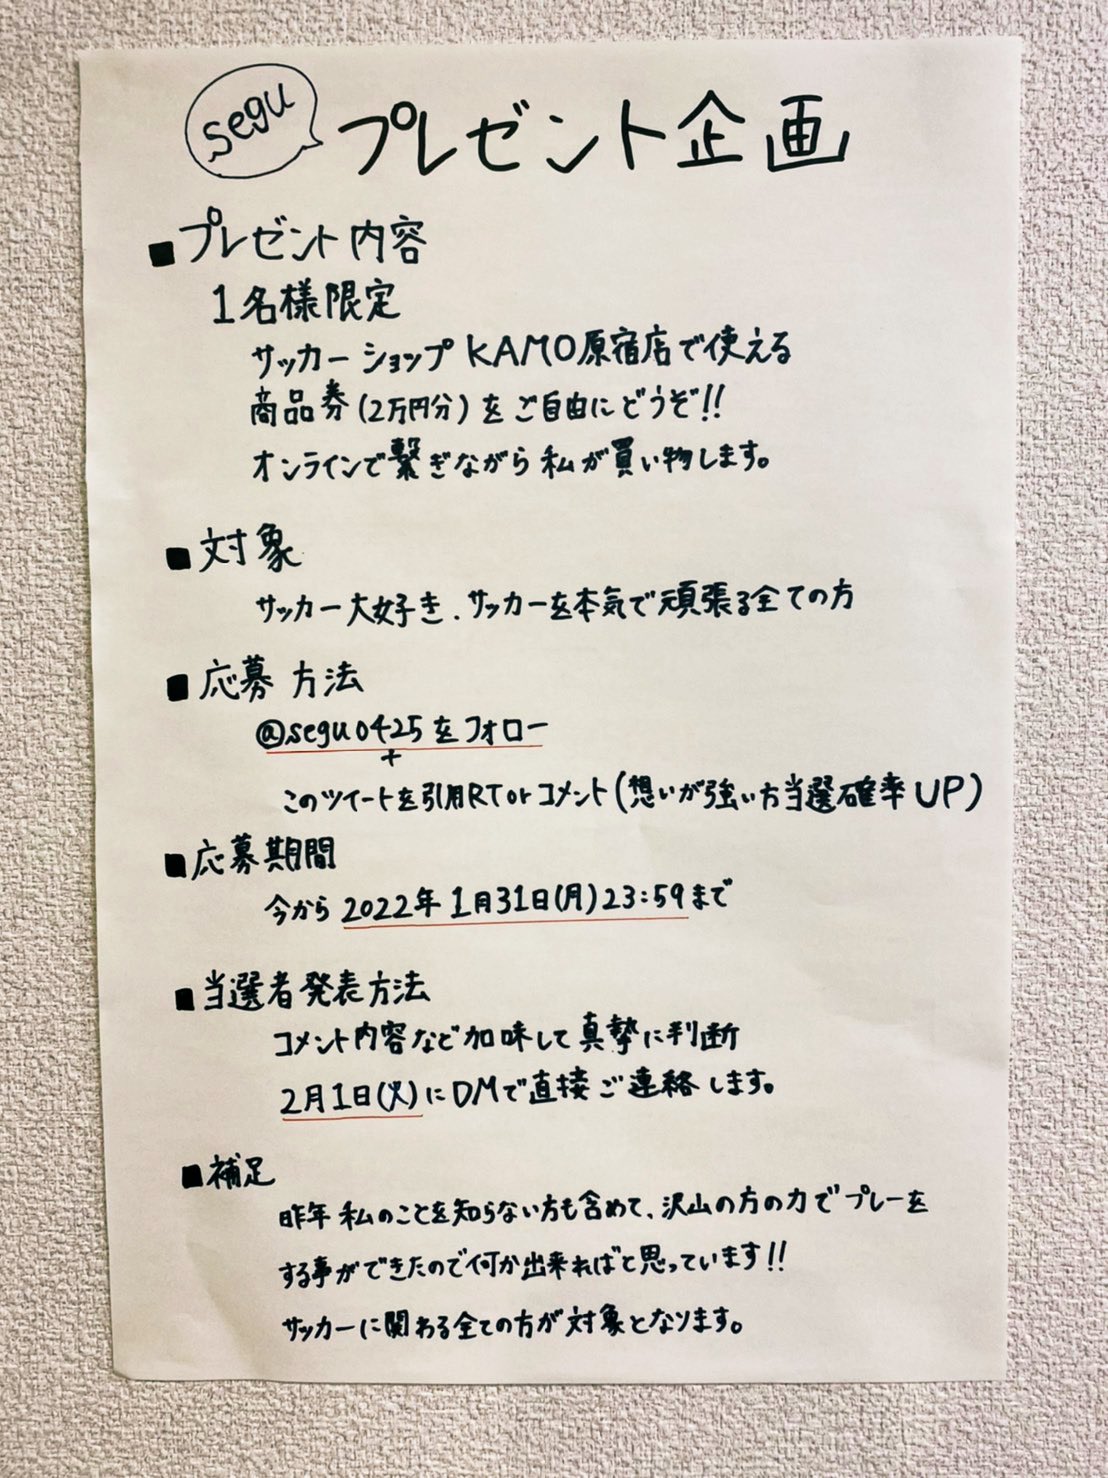 segu
プレゼント企画
■プレゼント内容
1名様限定
サッカーショップKAMO原宿店で使える
商品券(2万円分)をご自由にどうぞ!!
オンラインで繋ぎながら私が買い物します。
■対象
サッカー大好き.サッカーを本気で頑張る全ての方
■応募方法
@segu0425をフォロー
+
このツイートを引用RTorコメント(想いが強い方当選確率UP)
■応募期間
今から2022年1月31日(月)23:59まで
■当選者発表方法
コメント内容など加味して真摯に判断
2月1日(火)にDMで直接ご連絡します。
■補足
昨年私のことを知らない方も含めて、沢山の方の力でプレーを
する事ができたので何か出来ればと思っています!!
サッカーに関わる全ての方が対象となります。